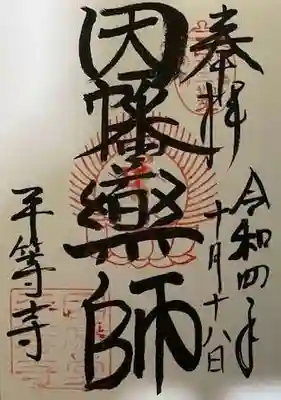 奉拝
令和四年
十月十八日
因幡薬師
平等寺